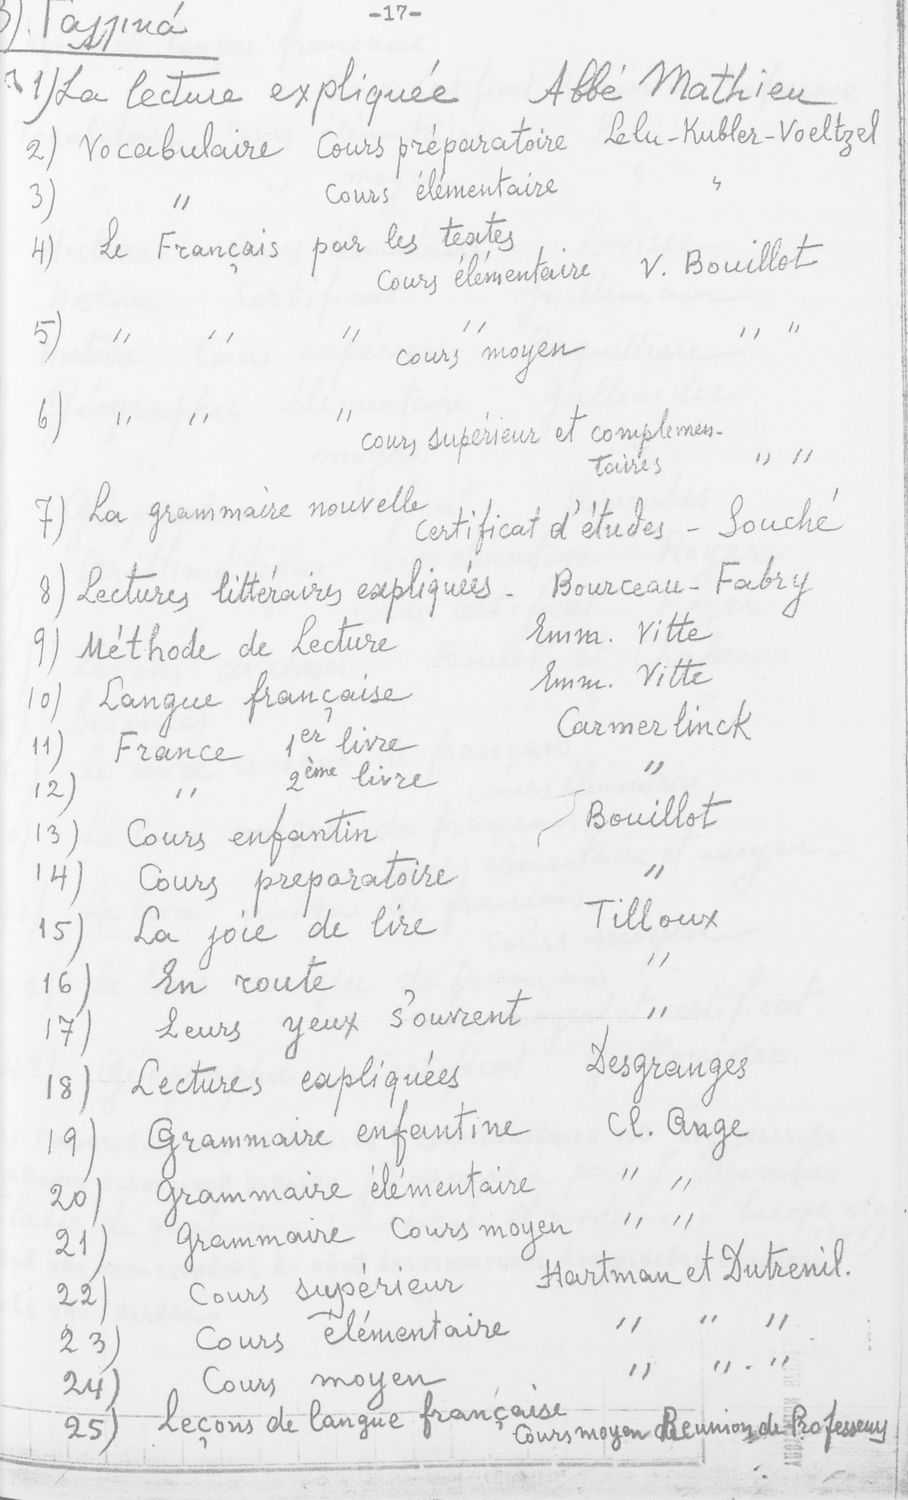 -17-
Γαλλικά
1) La lecture expliquée Abbé Mathieu
2) Vocabulaire Cours préparatoire Lelu-Kubler-Voeltzel
3) " Cours élémentaire "
4) Le Français par les textes
Cours élémentaire V. Bouillot
5) " " " " cours moyen " "
6) " " "
cours supérieur et complémen-
taires " "
7) La grammaire nouvelle
Certificat d'études - Souché
8) Lectures littéraires expliquées - Bourceau-Fabry
9) Méthode de Lecture Emm. Vitte
10) Langue française Emm. Vitte
11) France 1er livre Carmerlinck
12) " 2ème livre "
13) Cours enfantin Bouillot
14) Cours preparatoire "
15) La joie de lire Tilloux
16) En route "
17) Leurs yeux s'ouvrent "
18) Lectures expliquées Desgranges
19) Grammaire enfantine Cl. Auge
20) Grammaire élémentaire " "
21) Grammaire Cours moyen " "
22) Cours supérieur Hartman et Dutrenil.
23) Cours élémentaire " " "
24) Cours moyen " " - "
25) Leçons de langue française
Cours moyen Reunion de Professeurs